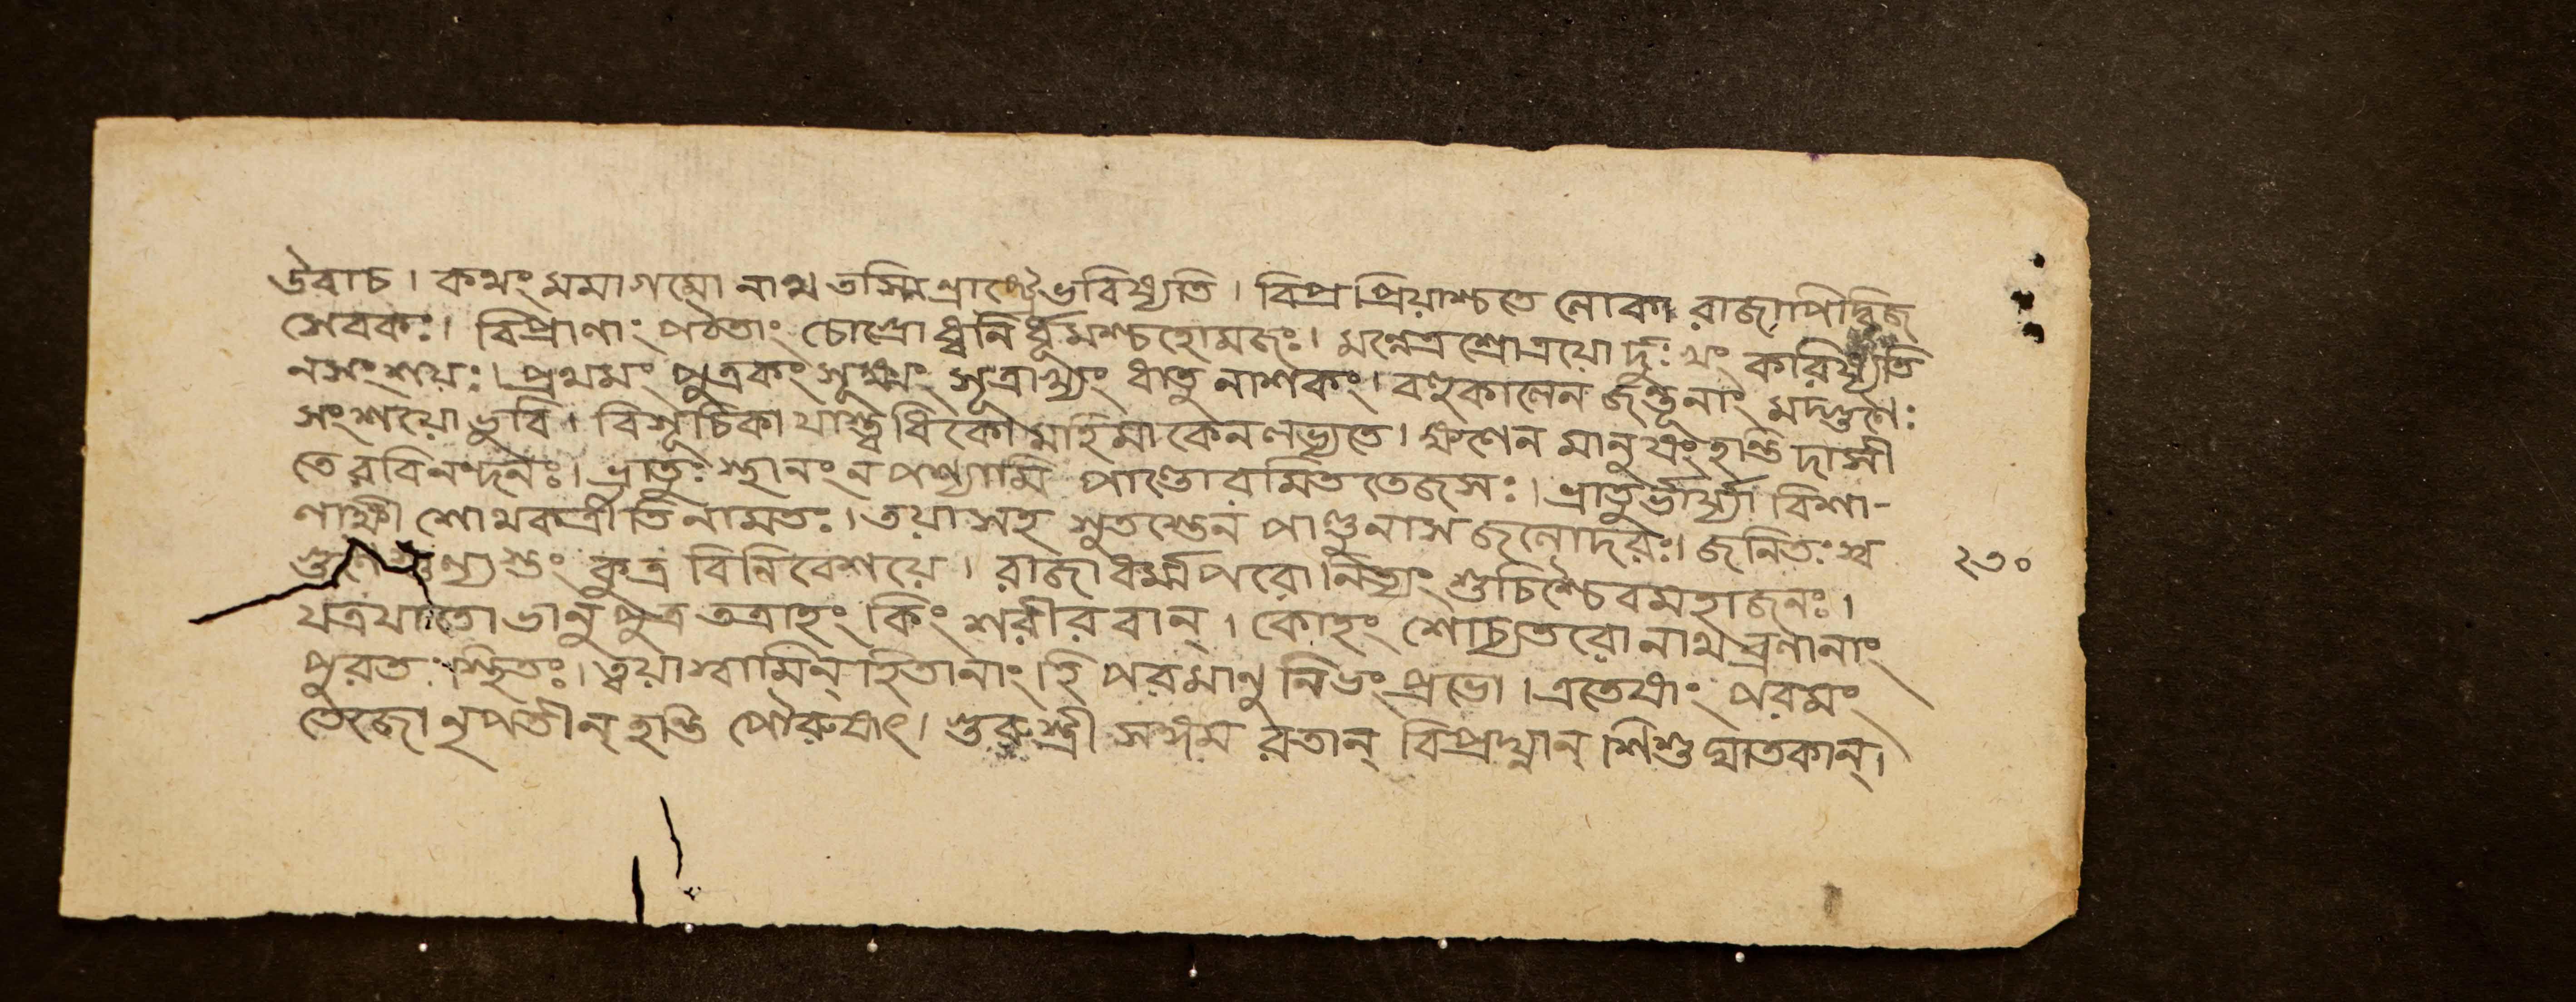 উবাচ। কথং মমাগমো নাথ তস্মিন্রাষ্ট্রে ভবিষ্যতি। বিপ্রপ্রিয়াশ্চতে লোকা রাজাপি দ্বিজ
সেবকঃ। বিপ্রাণাং পঠতাং চোগ্রো ধ্বনি র্ধূমশ্চহোমজঃ। মন্নেত্রশ্রোত্রয়ো র্দুঃখং করিষ্যতি
নসংশয়ঃ। প্রথমং পুত্রকং সূক্ষ্মং সূত্রাখ্যং ধাতু নাশকং। বহুকালেন জন্তূনাং মদ্গুণৈঃ
সংশয়ো ভুবি। বিসূচিকা যাস্ত্বধিকো মহিমা কেন লভ্যতে। ক্ষণেন মানুষং হন্তি দাসী
তে রবিনন্দনঃ। ভ্রাতুঃ স্থানং ন পশ্যামি পাণ্ডোরমিততেজসঃ। ভ্রাতুর্ভার্য্যা বিশা-
লাক্ষী শোথকর্ত্রীতি নামতঃ। তয়া সহ সুতস্তেন পাণ্ডুনাস জলোদরঃ। জনিতঃ
কুত্র বিনিবেশয়ে। রাজা ধর্ম্মপরো নিত্যং শুচিশ্চৈবমহাজনঃ।
যত্রযাতো ভানুপুত্র তত্রাহং কিং শরীরবান্। কোহং শোচ্যতরো নাথ ব্রণানাং
পুরতঃ স্থিতঃ। ত্বয়া স্বামিন্ হিতানাং হি পরমানু নিভং প্রভো। এতেষাং পরমং
তেজো নৃপতীন্ হন্তি পৌরুষাৎ। গুরুস্ত্রী সঙ্গম রতান্ বিপ্রঘ্নান্ শিশুঘাতকান্।
২৩০